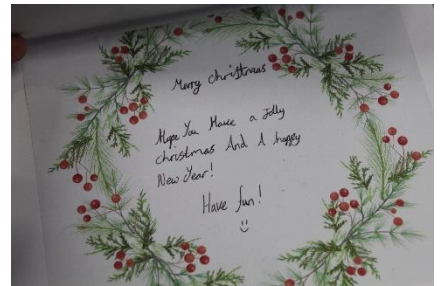 Merry christmas
Hope You Have a Jolly
christmas And A happy
New Year!
Have fun!
:)